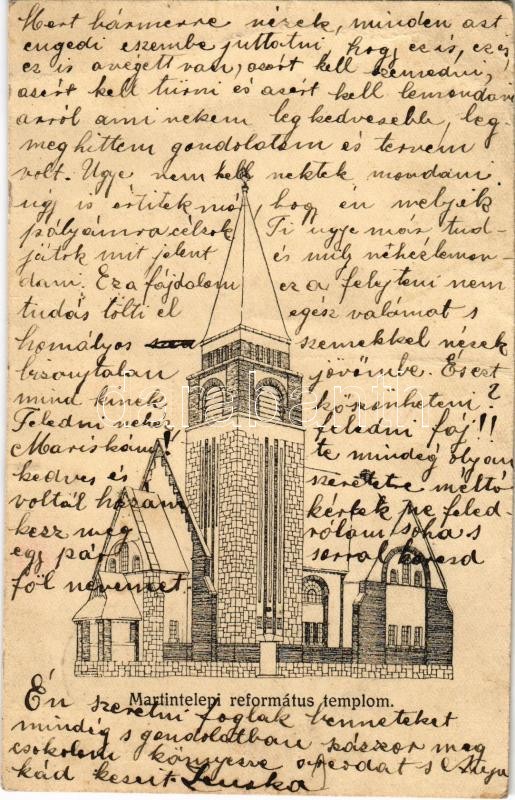 Mert bármerre nézek, minden azt
engedi eszembe juttatni, hogy ez is, ez is,
ez is avégett van, azért kell szenvedni,
azért kell tűrni és azért kell lemondani
arról ami nekem legkedvesebb, leg-
meghittem gondolatom és tervem
volt. Ugye nem kell nektek mondani
úgy is értitek mó hogy én melyik
pályámra célzok Ti ugye már tud-
játok mit jelent és mily nehéz lemon-
dani. Ez a fájdalom ez a felejteni nem
tudás tölti el egész valómat s
homályos szemekkel nézek
bizonytalan jövőmbe. És ezt
mind kinek köszönhetem?
Feledni nehéz feledni fáj!!
Mariskám! te mindég olyan
kedves és szeretetre méltó
voltál hozzám kérlek ne feled-
kezz meg rólam soha s
egy pár sorral keresd
föl nevemet.
Martintelepi református templom.
Én szeretni foglak benneteket
mindég s gondolatban százszor meg
csokolom könnyesre arcodat s
kád keserű Ilonka
darabanth